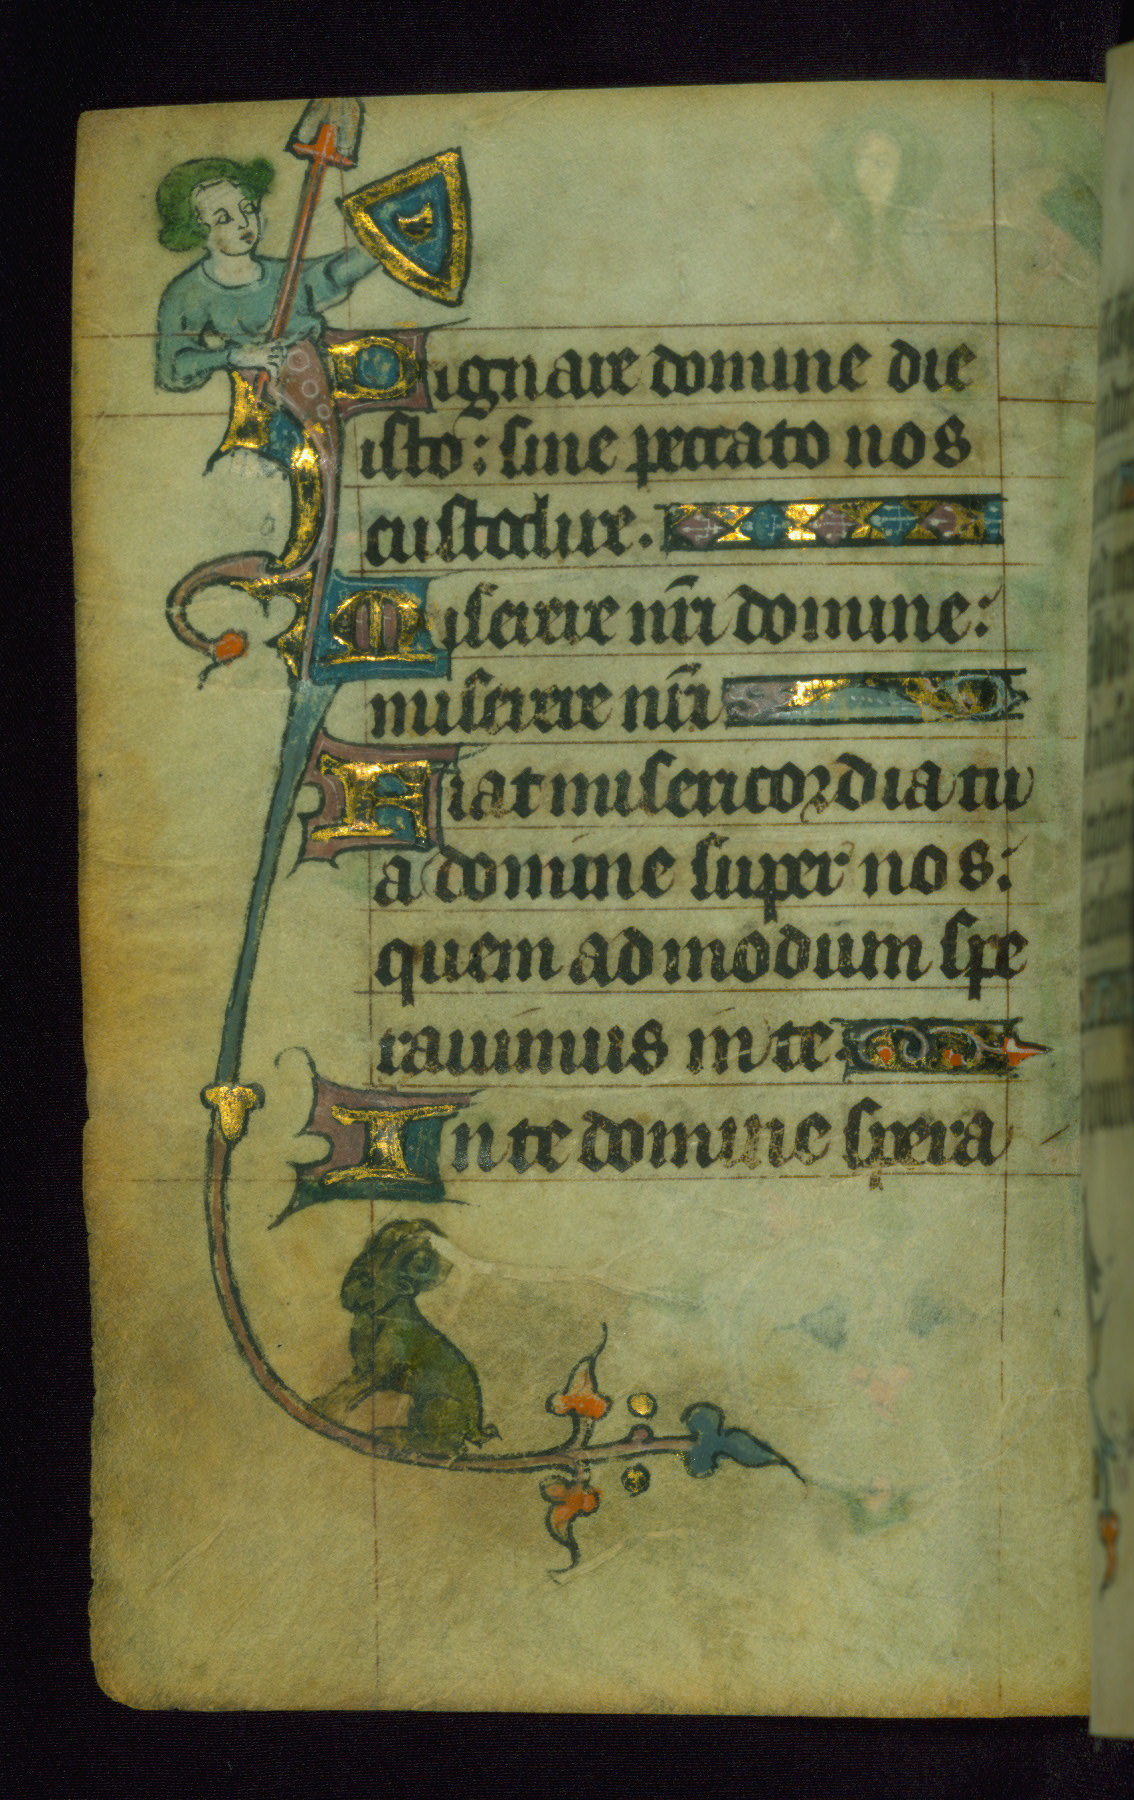 Dignare domine die
isto: sine peccato nos
custodire.
Miserere nr̄i domine:
miserere nr̄i
Fiat misericordia tu
a domine super nos:
quem ad modum spe
ravimus in te.
In te domine spera